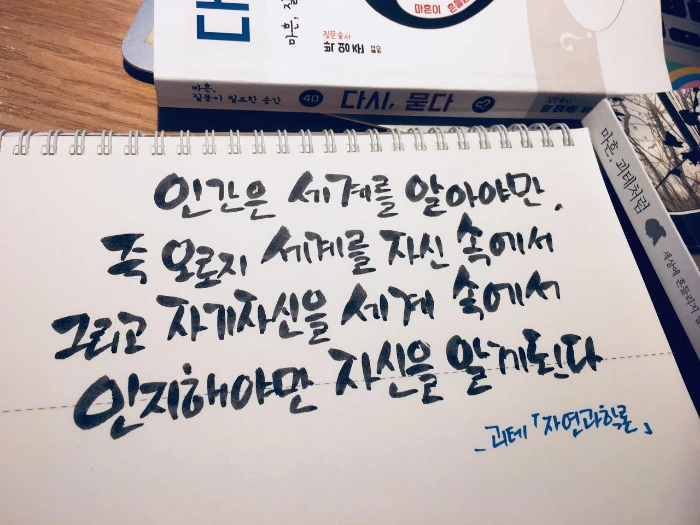 마흔이
질문술사
마흔,
질문이 필요한 순간
40
다시, 묻다
마흔, 괴테처럼
인간은 세계를 알아야만,
즉 오로지 세계를 자신 속에서
그리고 자기자신을 세계 속에서
인지해야만 자신을 알게된다
- 괴테 「자연과학론」